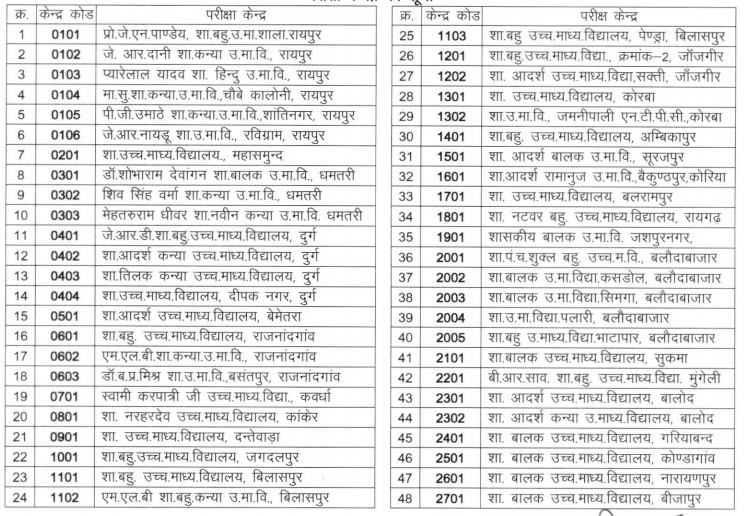 क्र. केन्द्र कोड परीक्षा केन्द्र
1 0101 प्रो.जे.एन.पाण्डेय, शा.बहु.उ.मा.शाला.रायपुर
2 0102 जे. आर.दानी शा.कन्या उ.मा.वि., रायपुर
3 0103 प्यारेलाल यादव शा. हिन्दु उ.मा.वि., रायपुर
4 0104 मा.सु.शा.कन्या.उ.मा.वि.,चौबे कालोनी, रायपुर
5 0105 पी.जी.उमाठे शा.कन्या उ.मा.वि.,शांतिनगर, रायपुर
6 0106 जे.आर.नायडू शा.उ.मा.वि., रविग्राम, रायपुर
7 0201 शा.उच्च.माध्य.विद्यालय., महासमुन्द
8 0301 डॉ.शोभाराम देवांगन शा.बालक उ.मा.वि., धमतरी
9 0302 शिव सिंह वर्मा शा.कन्या उ.मा.वि., धमतरी
10 0303 मेहतरुराम धीवर शा.नवीन कन्या उ.मा.वि. धमतरी
11 0401 जे.आर.डी.शा.बहु.उच्च.माध्य.विद्यालय, दुर्ग
12 0402 शा.आदर्श कन्या उच्च.माध्य.विद्यालय, दुर्ग
13 0403 शा.तिलक कन्या उच्च.माध्य.विद्यालय, दुर्ग
14 0404 शा.उच्च.माध्य.विद्यालय, दीपक नगर, दुर्ग
15 0501 शा.आदर्श उच्च.माध्य.विद्यालय, बेमेतरा
16 0601 शा.बहु. उच्च.माध्य.विद्यालय, राजनांदगांव
17 0602 एम.एल.बी.शा.कन्या.उ.मा.वि., राजनांदगांव
18 0603 डॉ.ब.प्र.मिश्र शा.उ.मा.वि.,बसंतपुर, राजनांदगांव
19 0701 स्वामी करपात्री जी उच्च.माध्य.विद्या., कवर्धा
20 0801 शा. नरहरदेव उच्च.माध्य.विद्यालय, कांकेर
21 0901 शा. उच्च.माध्य.विद्यालय, दन्तेवाड़ा
22 1001 शा.बहु.उच्च.माध्य.विद्यालय, जगदलपुर
23 1101 शा.बहु. उच्च.माध्य.विद्यालय, बिलासपुर
24 1102 एम.एल.बी शा.बहु.कन्या उ.मा.वि., बिलासपुर
क्र. केन्द्र कोड परीक्षा केन्द्र
25 1103 शा.बहु उच्च.माध्य.विद्यालय, पेण्ड्रा, बिलासपुर
26 1201 शा.बहु.उच्च.माध्य.विद्या., क्रमांक–2, जॉजगीर
27 1202 शा. आदर्श उच्च.माध्य.विद्या,सक्ती, जॉंजगीर
28 1301 शा. उच्च.माध्य.विद्यालय, कोरबा
29 1302 शा.उ.मा.वि., जमनीपाली एन.टी.पी.सी.,कोरबा
30 1401 शा.बहु. उच्च.माध्य.विद्यालय, अम्बिकापुर
31 1501 शा. आदर्श बालक उ.मा.वि., सूरजपुर
32 1601 शा.आदर्श रामानुज उ.मा.वि.,बैकुण्ठपुर,कोरिया
33 1701 शा. उच्च.माध्य.विद्यालय, बलरामपुर
34 1801 शा. नटवर बहु. उच्च.माध्य.विद्यालय, रायगढ़
35 1901 शासकीय बालक उ.मा.वि. जशपुरनगर,
36 2001 शा.पं.च.शुक्ल बहु. उच्च.म.वि., बलौदाबाजार
37 2002 शा.बालक उ.मा.विद्या.कसडोल, बलौदाबाजार
38 2003 शा.बालक उ.मा.विद्या.सिमगा, बलौदाबाजार
39 2004 शा.उ.मा.विद्या.पलारी, बलौदाबाजार
40 2005 शा.बहु उ.माध्य.विद्या.भाटापार, बलौदाबाजार
41 2101 शा.बालक उच्च.माध्य.विद्यालय, सुकमा
42 2201 बी.आर.साव. शा.बहु. उच्च.माध्य.विद्या. मुंगेली
43 2301 शा. आदर्श उच्च.माध्य.विद्यालय, बालोद
44 2302 शा. आदर्श कन्या उ.माध्य.विद्यालय, बालोद
45 2401 शा. बालक उच्च.माध्य.विद्यालय, गरियाबन्द
46 2501 शा. बालक उच्च.माध्य.विद्यालय, कोण्डागांव
47 2601 शा. बालक उच्च.माध्य.विद्यालय, नारायणपुर
48 2701 शा. बालक उच्च.माध्य.विद्यालय, बीजापुर